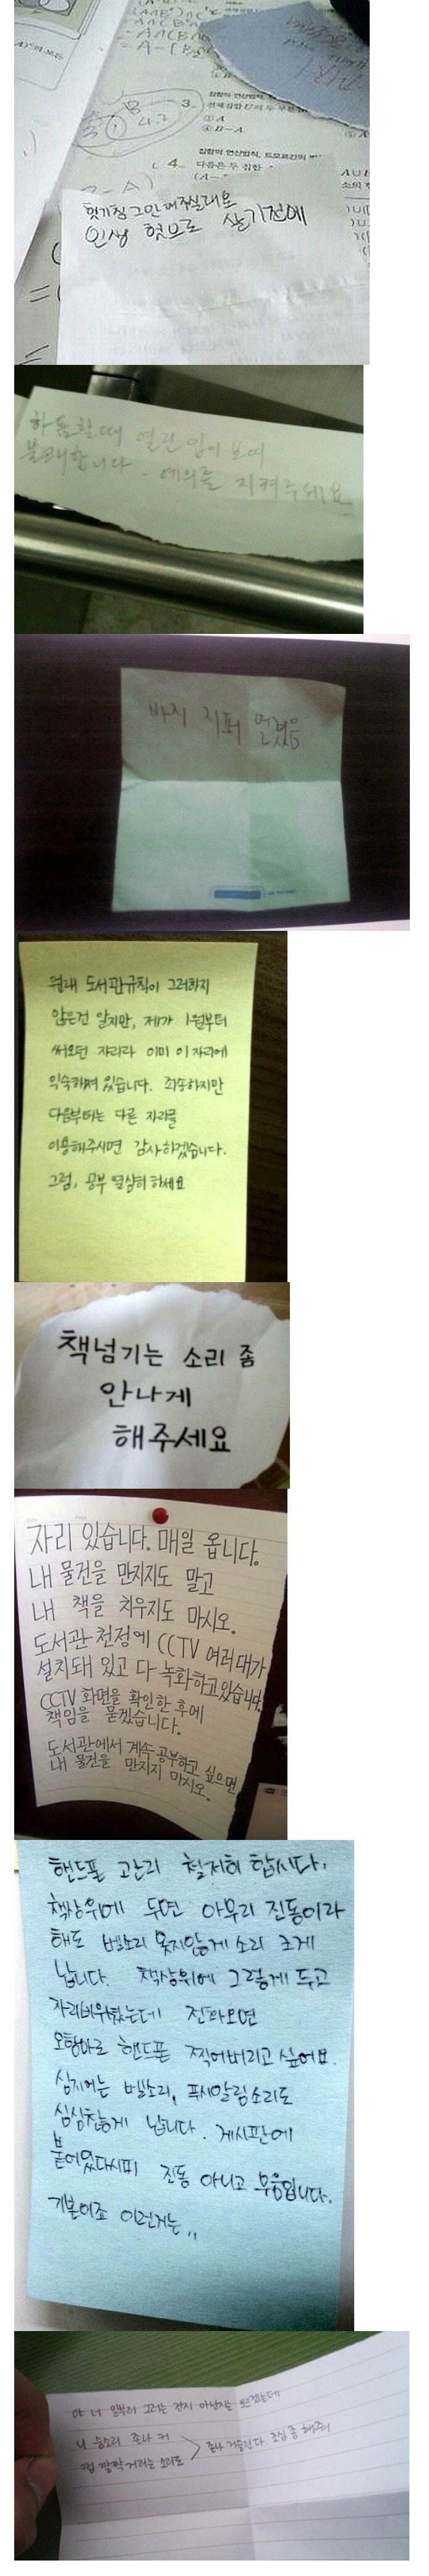 집합의 연산법칙
3. 전체집합 U의 두 부분
① A
③ B-A
집합의 연산법칙, 드모르간의
4. 다음은 두 집합
헛기침 그만해주실래요
인생 헛으로 살기전에
하품할때 열린 입이 보여
불쾌합니다. 예의를 지켜주세요
바지 지퍼 열렸음
원래 도서관규칙이 그러하지
않은건 알지만, 제가 1월부터
써오던 자리라 이미 이 자리에
익숙해져 있습니다. 죄송하지만
다음부터는 다른 자리를
이용해주시면 감사하겠습니다.
그럼, 공부 열심히 하세요
책넘기는 소리 좀
안나게
해주세요
자리 있습니다. 매일 옵니다.
내 물건을 만지지도 말고
내 책을 치우지도 마시오.
도서관 천정에 CCTV 여러대가
설치돼 있고 다 녹화하고있습니다.
CCTV 화면을 확인한 후에
책임을 묻겠습니다.
도서관에서 계속 공부하고 싶으면
내 물건을 만지지 마시오.
핸드폰 관리 철저히 합시다.
책상위에 두면 아무리 진동이라
해도 벨소리 못지않게 소리 크게
납니다. 책상위에 그렇게 두고
자리비워뒀는데 전화오면
오함마로 핸드폰 찍어버리고 싶어요.
심지어는 벨소리, 푸시알림소리도
심심찮게 납니다. 게시판에
붙어있다시피 진동 아니고 무음입니다.
기본이죠 이런거는,,
야 너 일부러 그러는 건지 아닌지는 모르겠는데
니 숨소리 존나 커
껌 깔짝거리는 소리도 존나 거슬린다 조심 좀 해줘